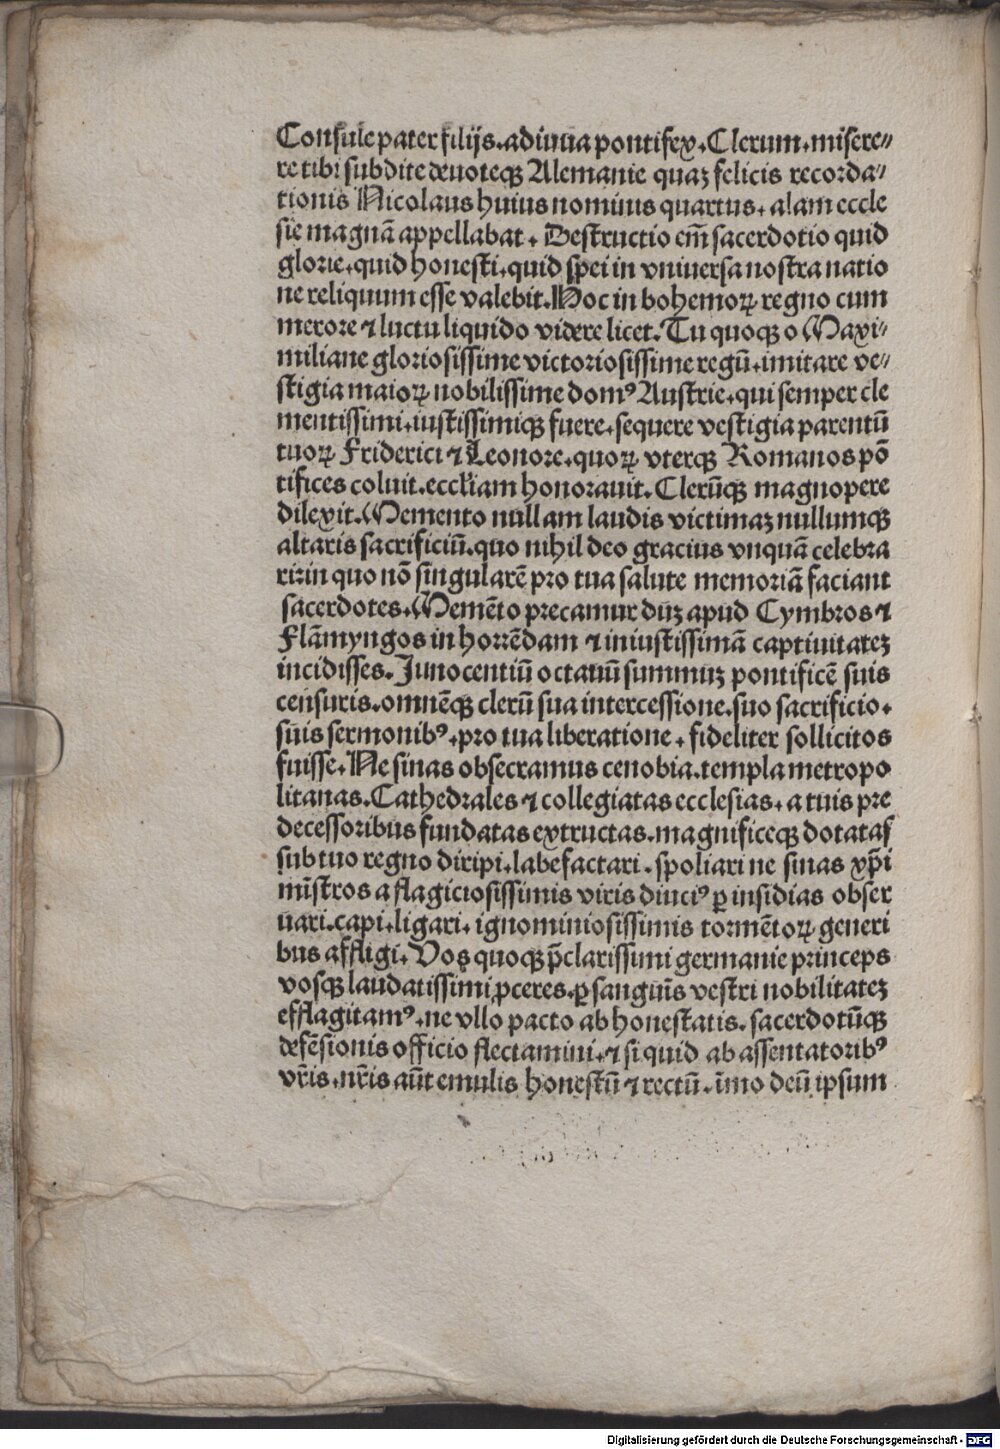 Consule pater filijs. adiuua pontifex. Clerum. misere⸗
re tibi subdite deuoteqꝫ Alemanie quaꝫ felicis recorda⸗
tionis Nicolaus huius nominis quartus. alam eccle
sie magnā appellabat. Destructio em̄ sacerdotio quid
glorie. quid honesti. quid spei in vniuersa nostra natio
ne reliquum esse valebit. Hoc in bohemoꝝ regno cum
merore ⁊ luctu liquido videre licet. Tu quoqꝫ o Maxi⸗
miliane gloriosissime victoriosissime regū. imitare ve⸗
stigia maioꝝ nobilissime domꝰ Austrie. qui semper cle
mentissimi. iustissimiqꝫ fuere. sequere vestigia parentū
tuoꝝ Friderici ⁊ Leonore. quoꝝ vterqꝫ Romanos pō
tifices coluit. eccl'iam honorauit. Clerūqꝫ magnopere
dilexit. Memento nullam laudis victimaꝫ nullumqꝫ
altaris sacrificiū. quo nihil deo gracius vnquā celebra
ri: in quo nō singularē pro tua salute memoriā faciant
sacerdotes. Memēto precamur duꝫ apud Cymbros ⁊
Flāmyngos in horrēdam ⁊ iniustissimā captiuitateꝫ
incidisses. Junocentiū octauū summuꝫ pontificē suis
censuris. omnēqꝫ clerū sua intercessione. suo sacrificio.
suis sermonibꝰ. pro tua liberatione. fideliter sollicitos
fuisse. Ne sinas obsecramus cenobia. templa metropo
litanas. Cathedrales ⁊ collegiatas ecclesias. a tuis pre
decessoribus fundatas extructas. magnificeqꝫ dotatas
sub tuo regno diripi. labefactari. spoliari ne sinas xp̄i
mīstros a flagiciosissimis viris diuciꝰ ꝑ insidias obser
uari. capi. ligari. ignominiosissimis tormētoꝝ generi
bus affligi. Vos quoqꝫ p̄clarissimi germanie princeps
vosqꝫ laudatissimi ꝓceres. ꝑ sanguīs vestri nobilitateꝫ
efflagitamꝰ. ne vllo pacto ab honestatis. sacerdotūqꝫ
defēsionis officio flectamini. ⁊ si quid ab assentatoribꝰ
vr̄is. nr̄is aūt emulis honestū ⁊ rectū. īmo deū ipsum
Digitalisierung gefördert durch die Deutsche Forschungsgemeinschaft - DFG